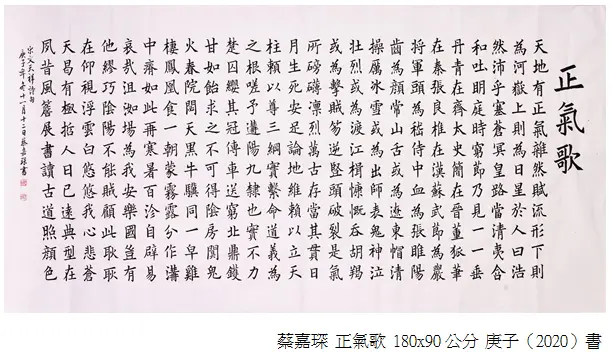 正氣歌
天地有正氣雜然賦流形下則
為河嶽上則為日星於人曰浩
然沛乎塞蒼冥皇路當清夷含
和吐明庭時窮節乃見一一垂
丹青在齊太史簡在晉董狐筆
在秦張良椎在漢蘇武節為嚴
將軍頭為嵇侍中血為張睢陽
齒為顏常山舌或為遼東帽清
操厲冰雪或為出師表鬼神泣
壯烈或為渡江楫慷慨吞胡羯
或為擊賊笏逆豎頭破裂是氣
所磅礴凜烈萬古存當其貫日
月生死安足論地維賴以立天
柱賴以尊三綱實繫命道義為
之根嗟予遘陽九隸也實不力
楚囚纓其冠傳車送窮北鼎鑊
甘如飴求之不可得陰房闃鬼
火春院閟天黑牛驥同一皁雞
棲鳳凰食一朝蒙霧露分作溝
中瘠如此再寒暑百沴自辟易
哀哉沮洳場為我安樂國豈有
他繆巧陰陽不能賊顧此耿耿
在仰視浮雲白悠悠我心悲蒼
天曷有極哲人日已遠典型在
夙昔風簷展書讀古道照顏色
宋文天祥詩句
庚子年冬十一月十二日蔡嘉琛書
蔡嘉琛 正氣歌 180x90公分 庚子（2020）書